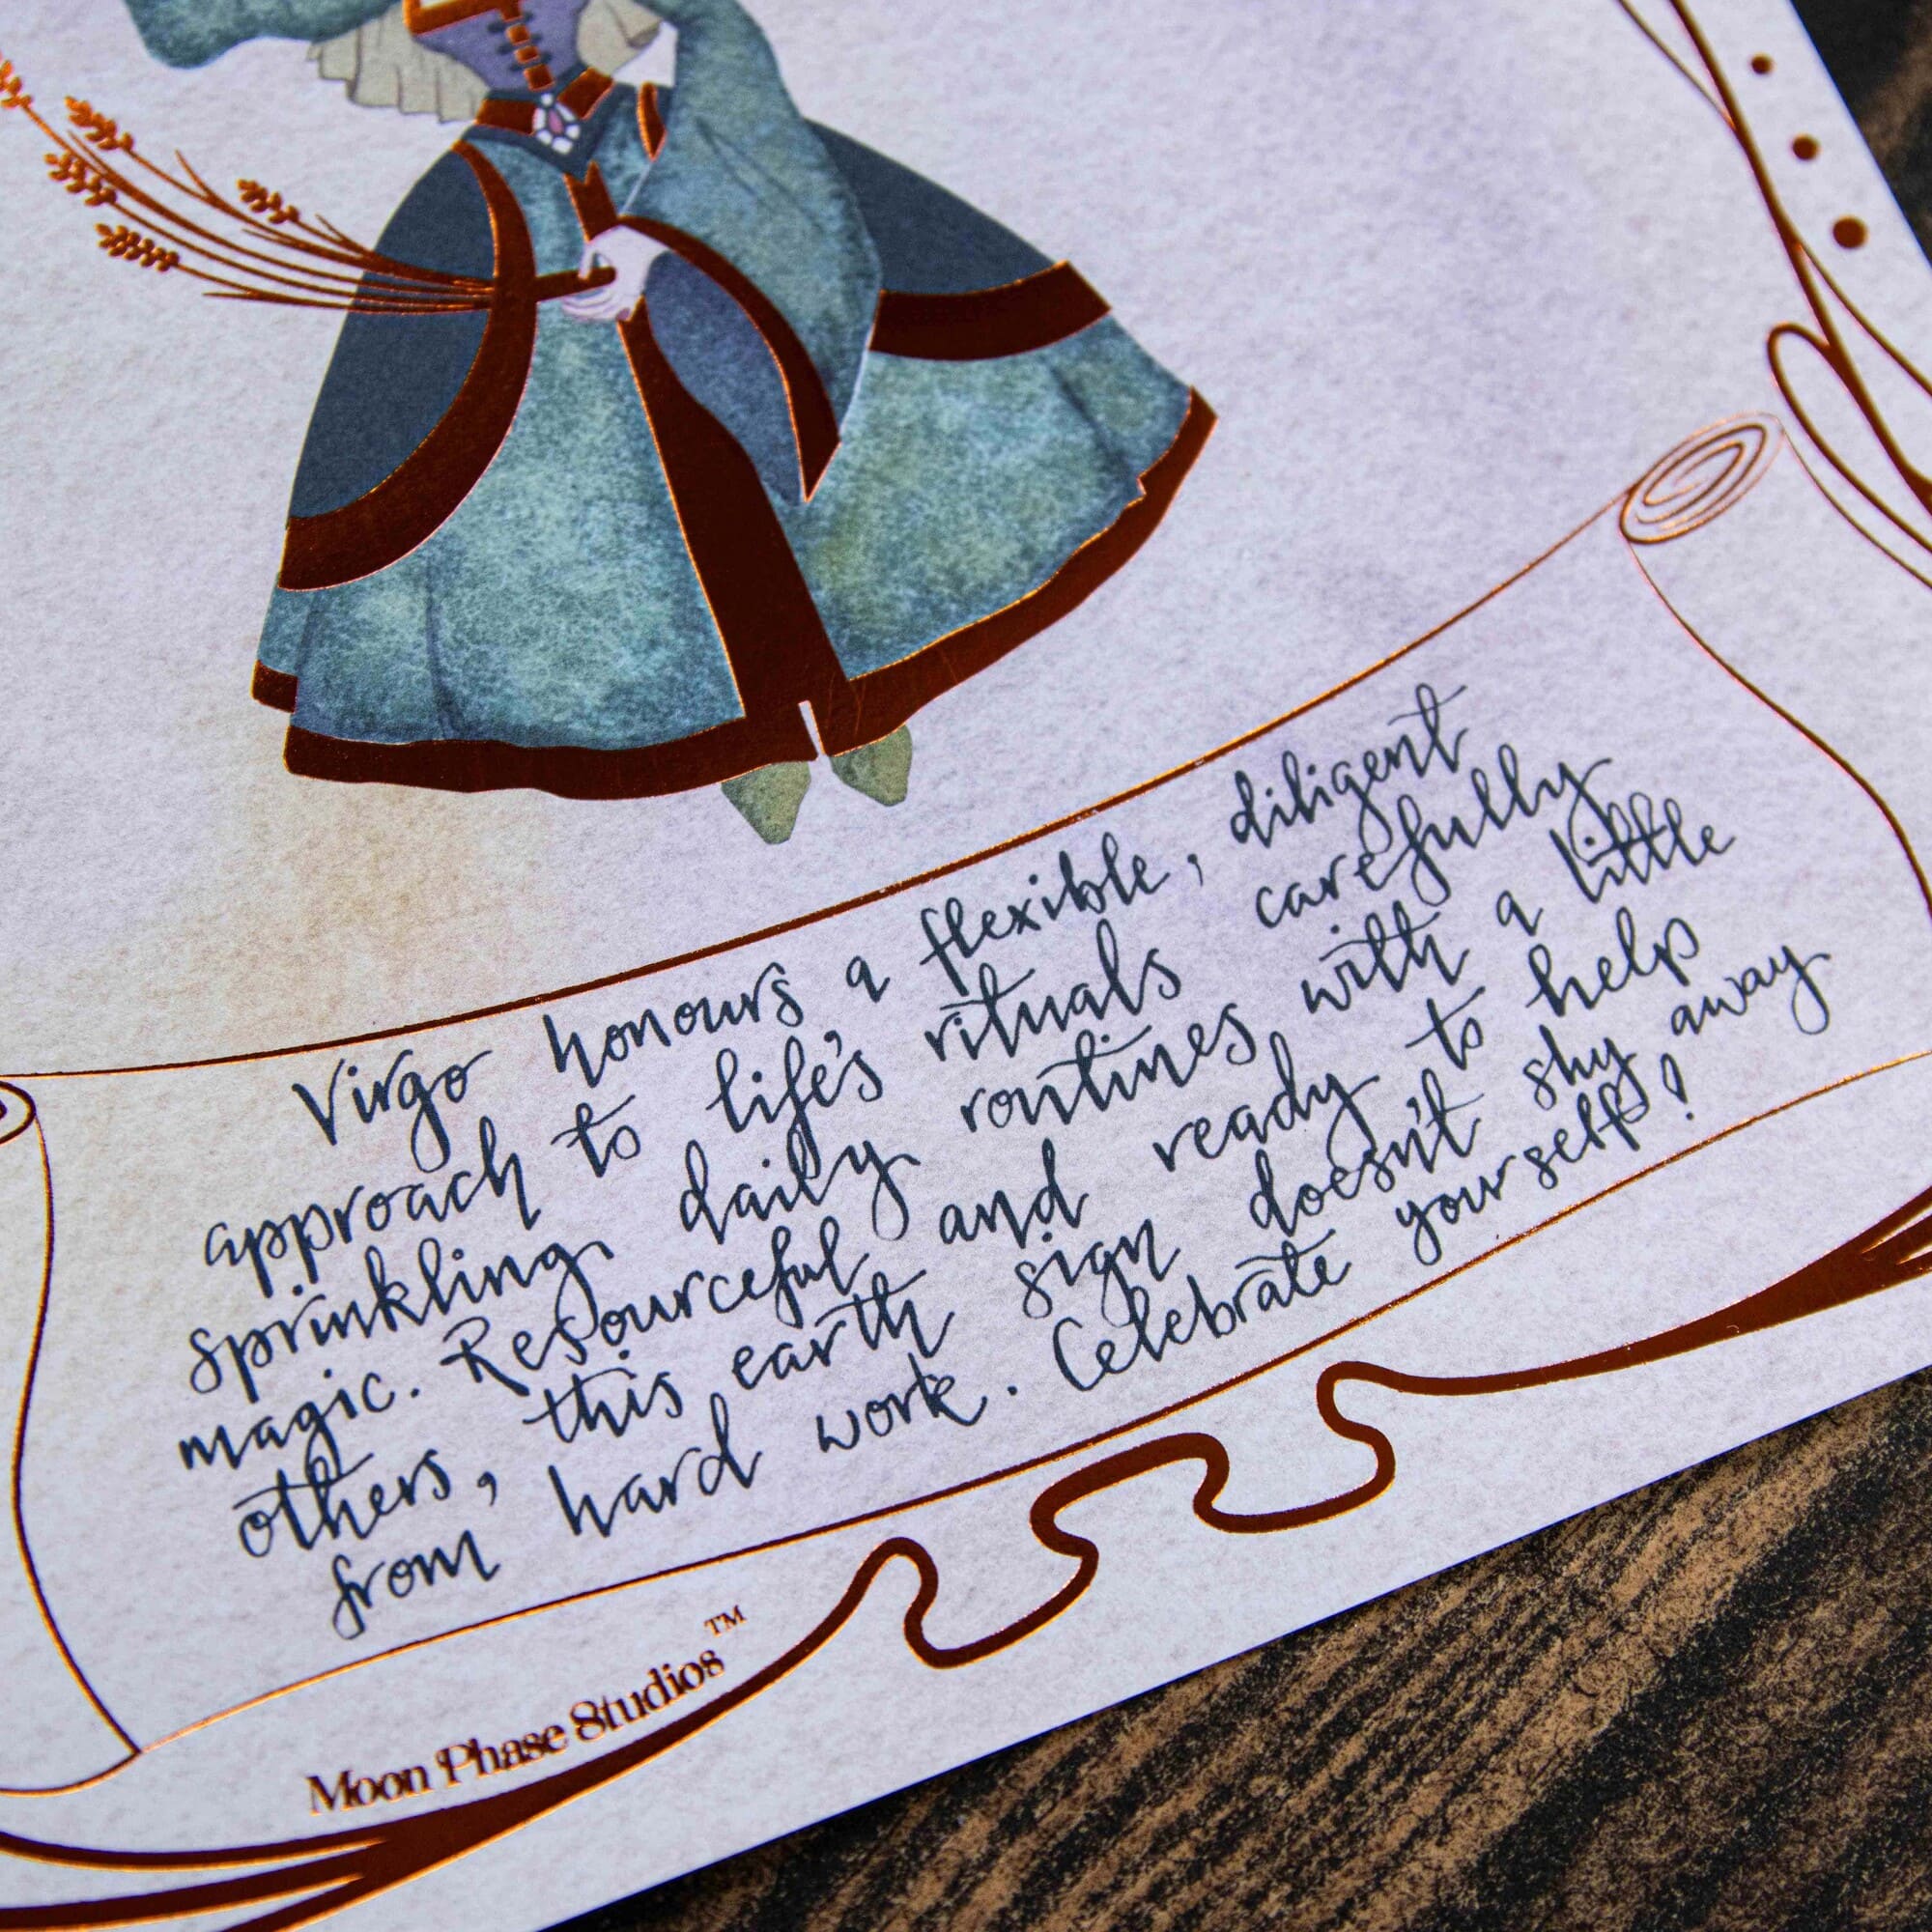 Virgo honours a flexible, diligent
approach to life's rituals carefully
sprinkling daily routines with a little
magic. Resourceful and ready to help
others, this earth sign doesn't shy away
from hard work. Celebrate yourself!
Moon Phase Studios™